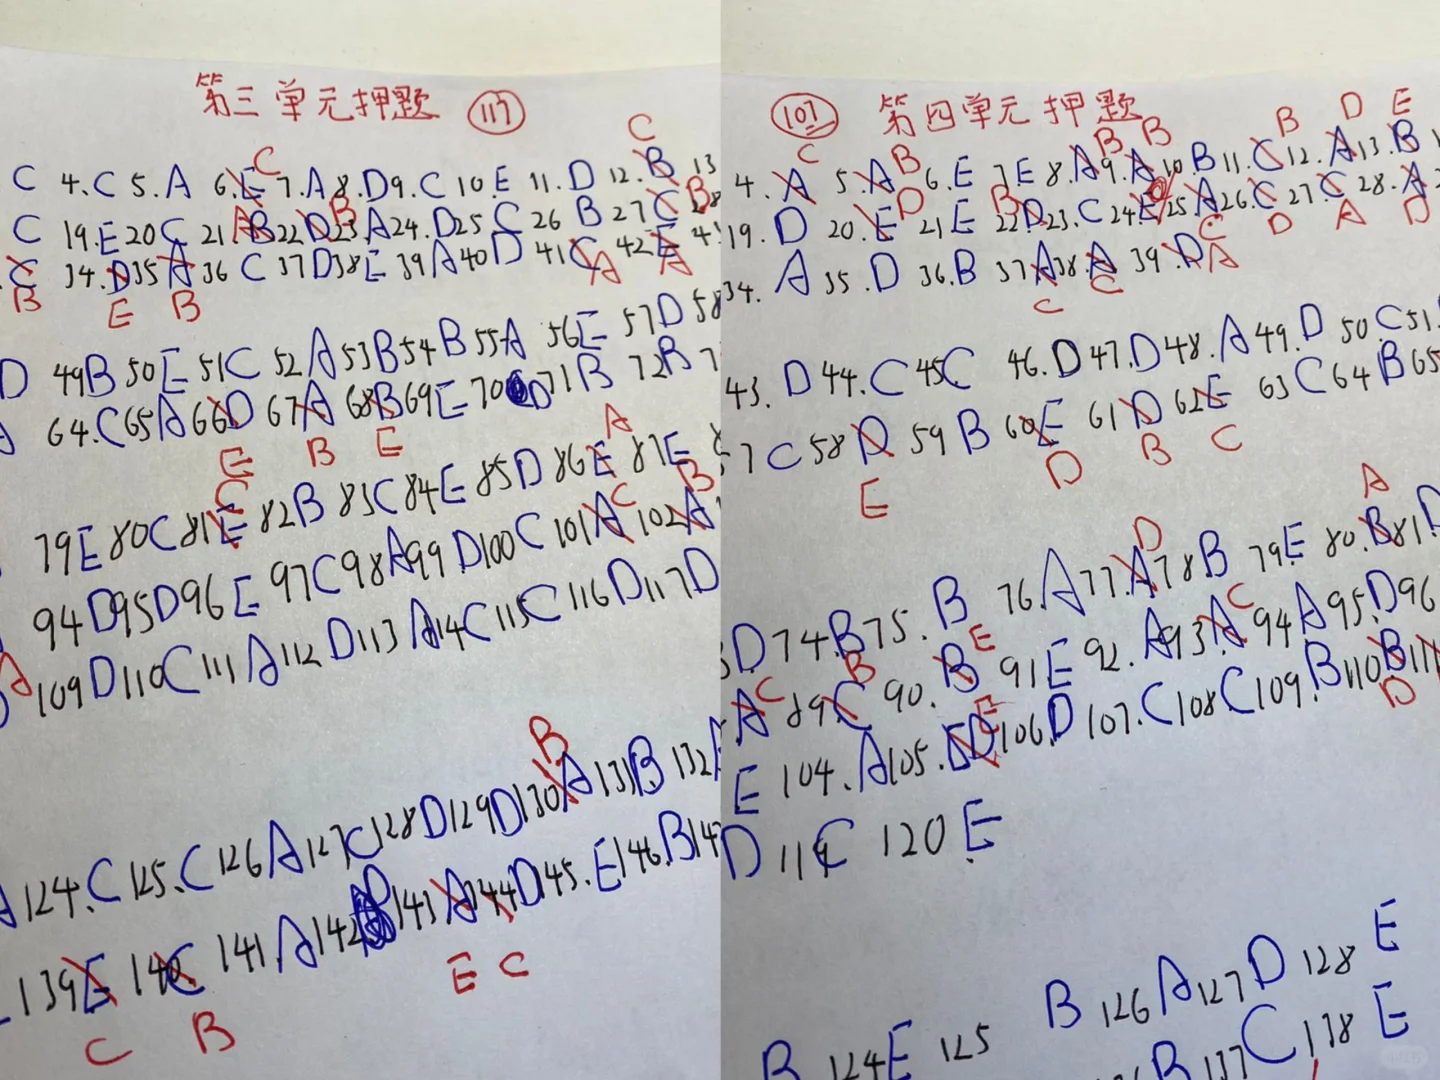 第三单元押题 117
C
C 4.C 5.A 6.E C 7.A 8.D 9.C 10.E 11.D 12.B 13
C 19.E 20C 21 B A 22D B 23A 24.D 25C 26 B 27C B
C 34.D 35A 36 C 37D 38E 39A 40D 41C 42E 4
B E B A A
D 49B 50E 51C 52A 53B 54B 55A 56E 57D 58
64.C 65A 66D 67A 68B 69E 70D 71B 72B 7
E B E A
79E 80C 81E C 82B 83C 84E 85D 86E 87E
94D 95D 96E 97C 98A 99D 100C 101A C 102A B
A 109D 110C 111A 112D 113A 114C 115C 116D 117D
B
A 124.C 125.C 126A 127C 128D 129D 130A 131B 132
139E 140C 141A 142 143A 144D 145.E 146.B 147
C B E C
107 第四单元押题
C B B B B D E
4.A 5.A 6.E 7E 8.A 9.A 10B 11.C 12.A 13.B
19.D 20.E D 21E 22D B 23.C 24E 25A 26.C 27.C 28.A
C D A D
34.A 35.D 36.B 37A 38.A 39.D A
C C
43.D 44.C 45C 46.D 47.D 48.A 49.D 50.C 51.
57C 58D 59B 60E 61D 62E 63C 64B 65
E D B C
D A
D 74.B 75.B 76.A 77.A 78B 79E 80.B 81D
A C 89C B 90.B E 91E 92.A 93A C 94A 95.D 96
E 104.A 105.D E 106D 107.C 108C 109.B 110B
D
D 119C 120E
B 124E 125 B 126A 127D 128 E
B 137C 138 E